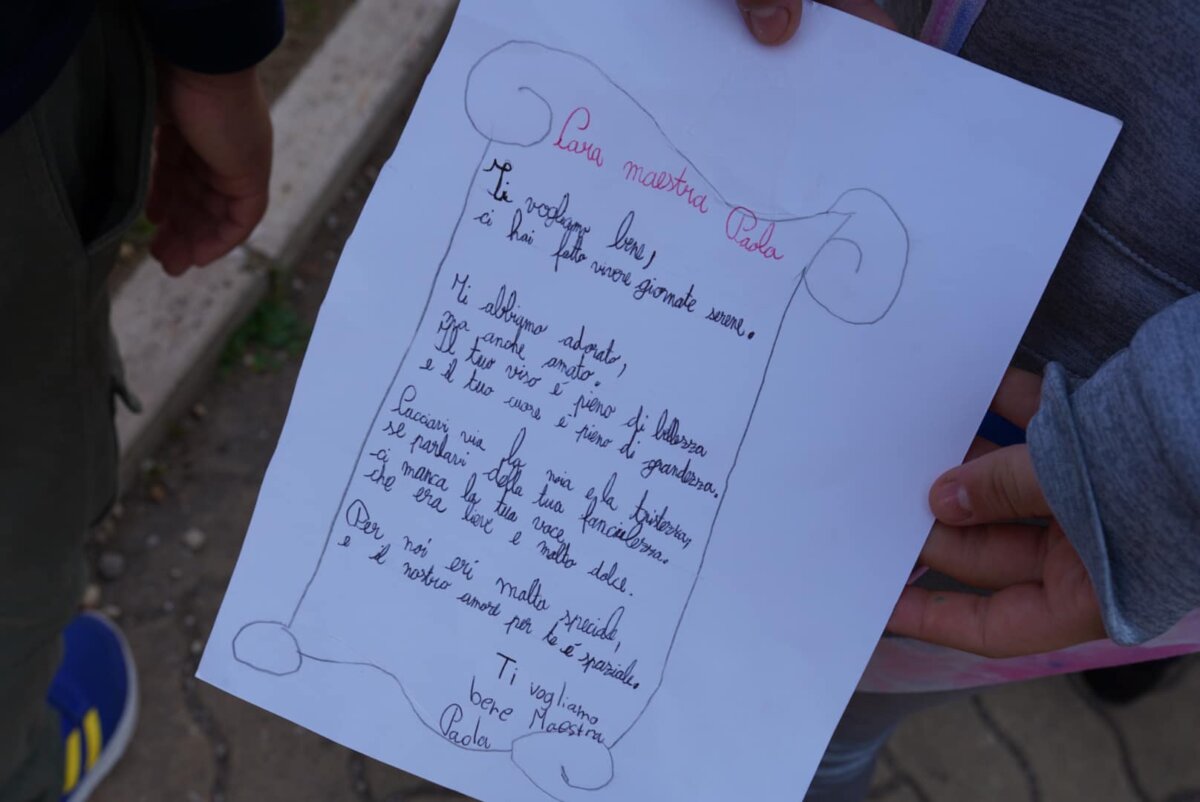 Cara maestra Paola
Ti vogliamo bene,
ci hai fatto vivere giornate serene.
Ti abbiamo adorato,
ma anche amato.
Il tuo viso é pieno di bellezza
e il tuo cuore é pieno di grandezza.
Cacciavi via la noia e la tristezza,
se parlavi della tua fanciullezza.
ci manca la tua voce
che era lieve e molto dolce.
Per noi eri molto speciale,
e il nostro amore per te é spaziale.
Ti vogliamo
bene Maestra
Paola